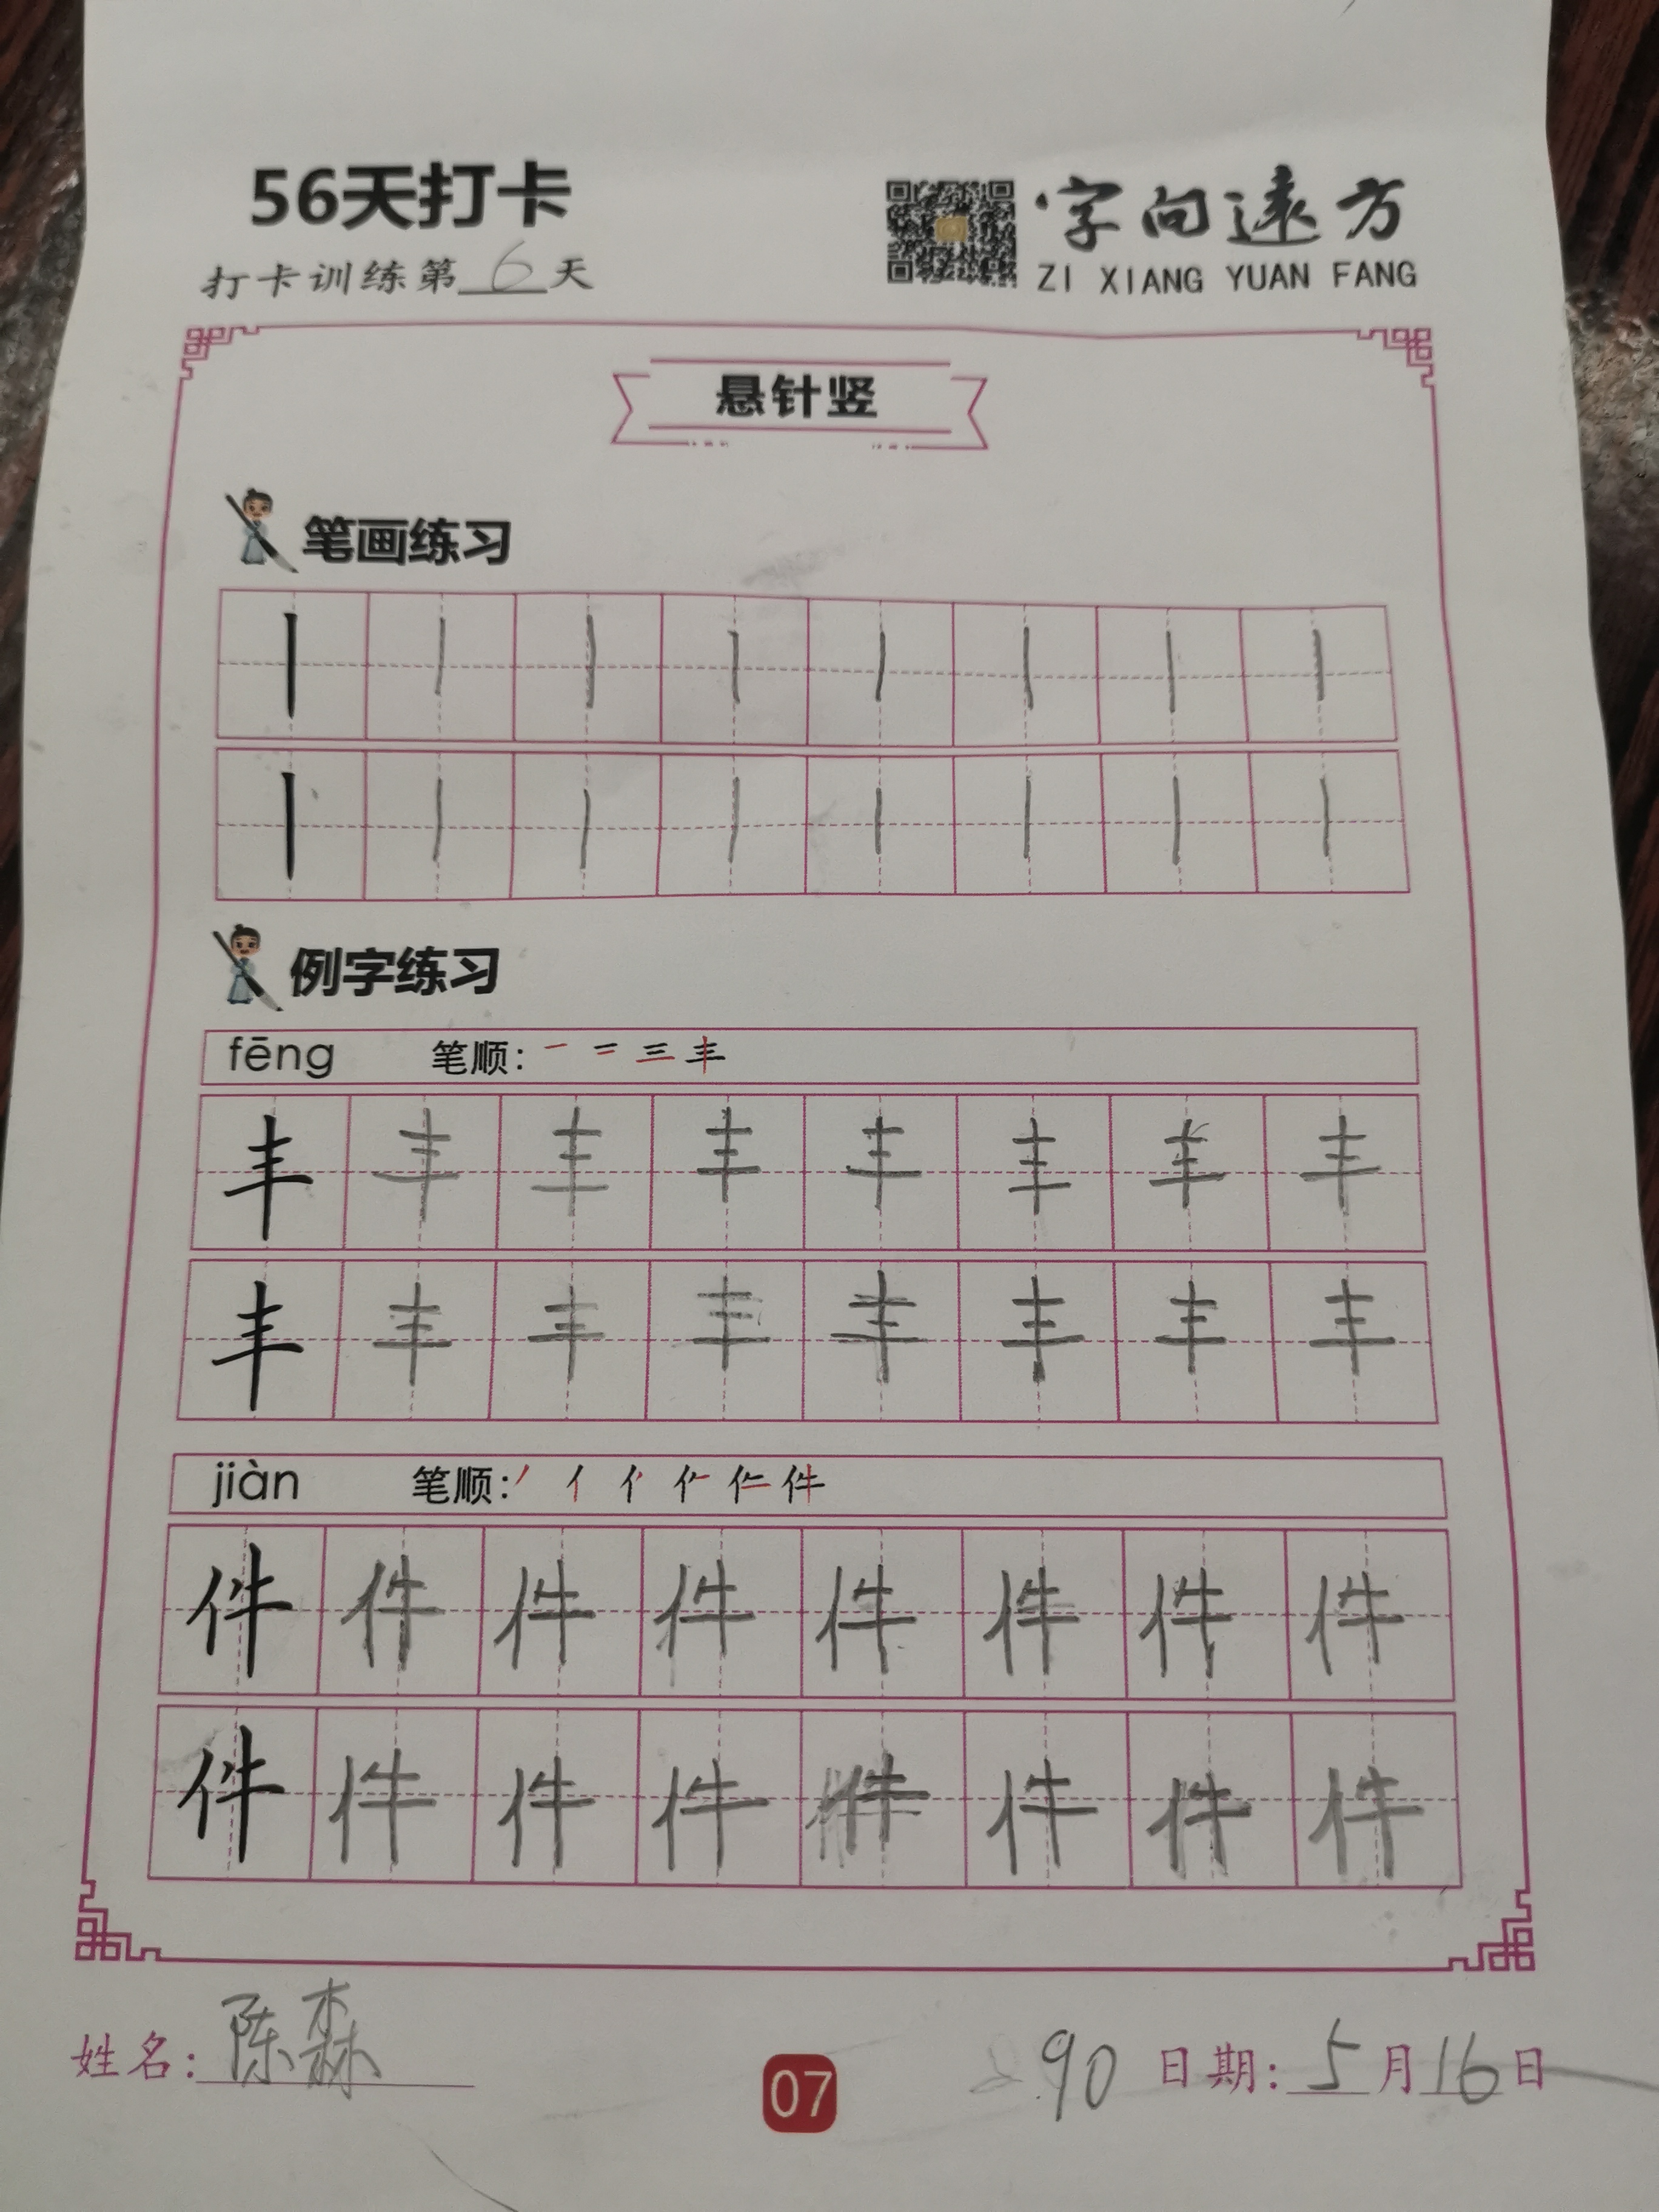 56天打卡
字向远方
打卡训练第6天
ZI XIANG YUAN FANG
悬针竖
笔画练习
丨丨丨丨丨丨丨丨
丨丨丨丨丨丨丨丨
例字练习
fēng 笔顺: 一 二 三 丰
丰丰丰丰丰丰丰丰
丰丰丰丰丰丰丰丰
jiàn 笔顺: 件
件件件件件件件件
件件件件件件件件
姓名:陈森
07
90
日期:5月16日